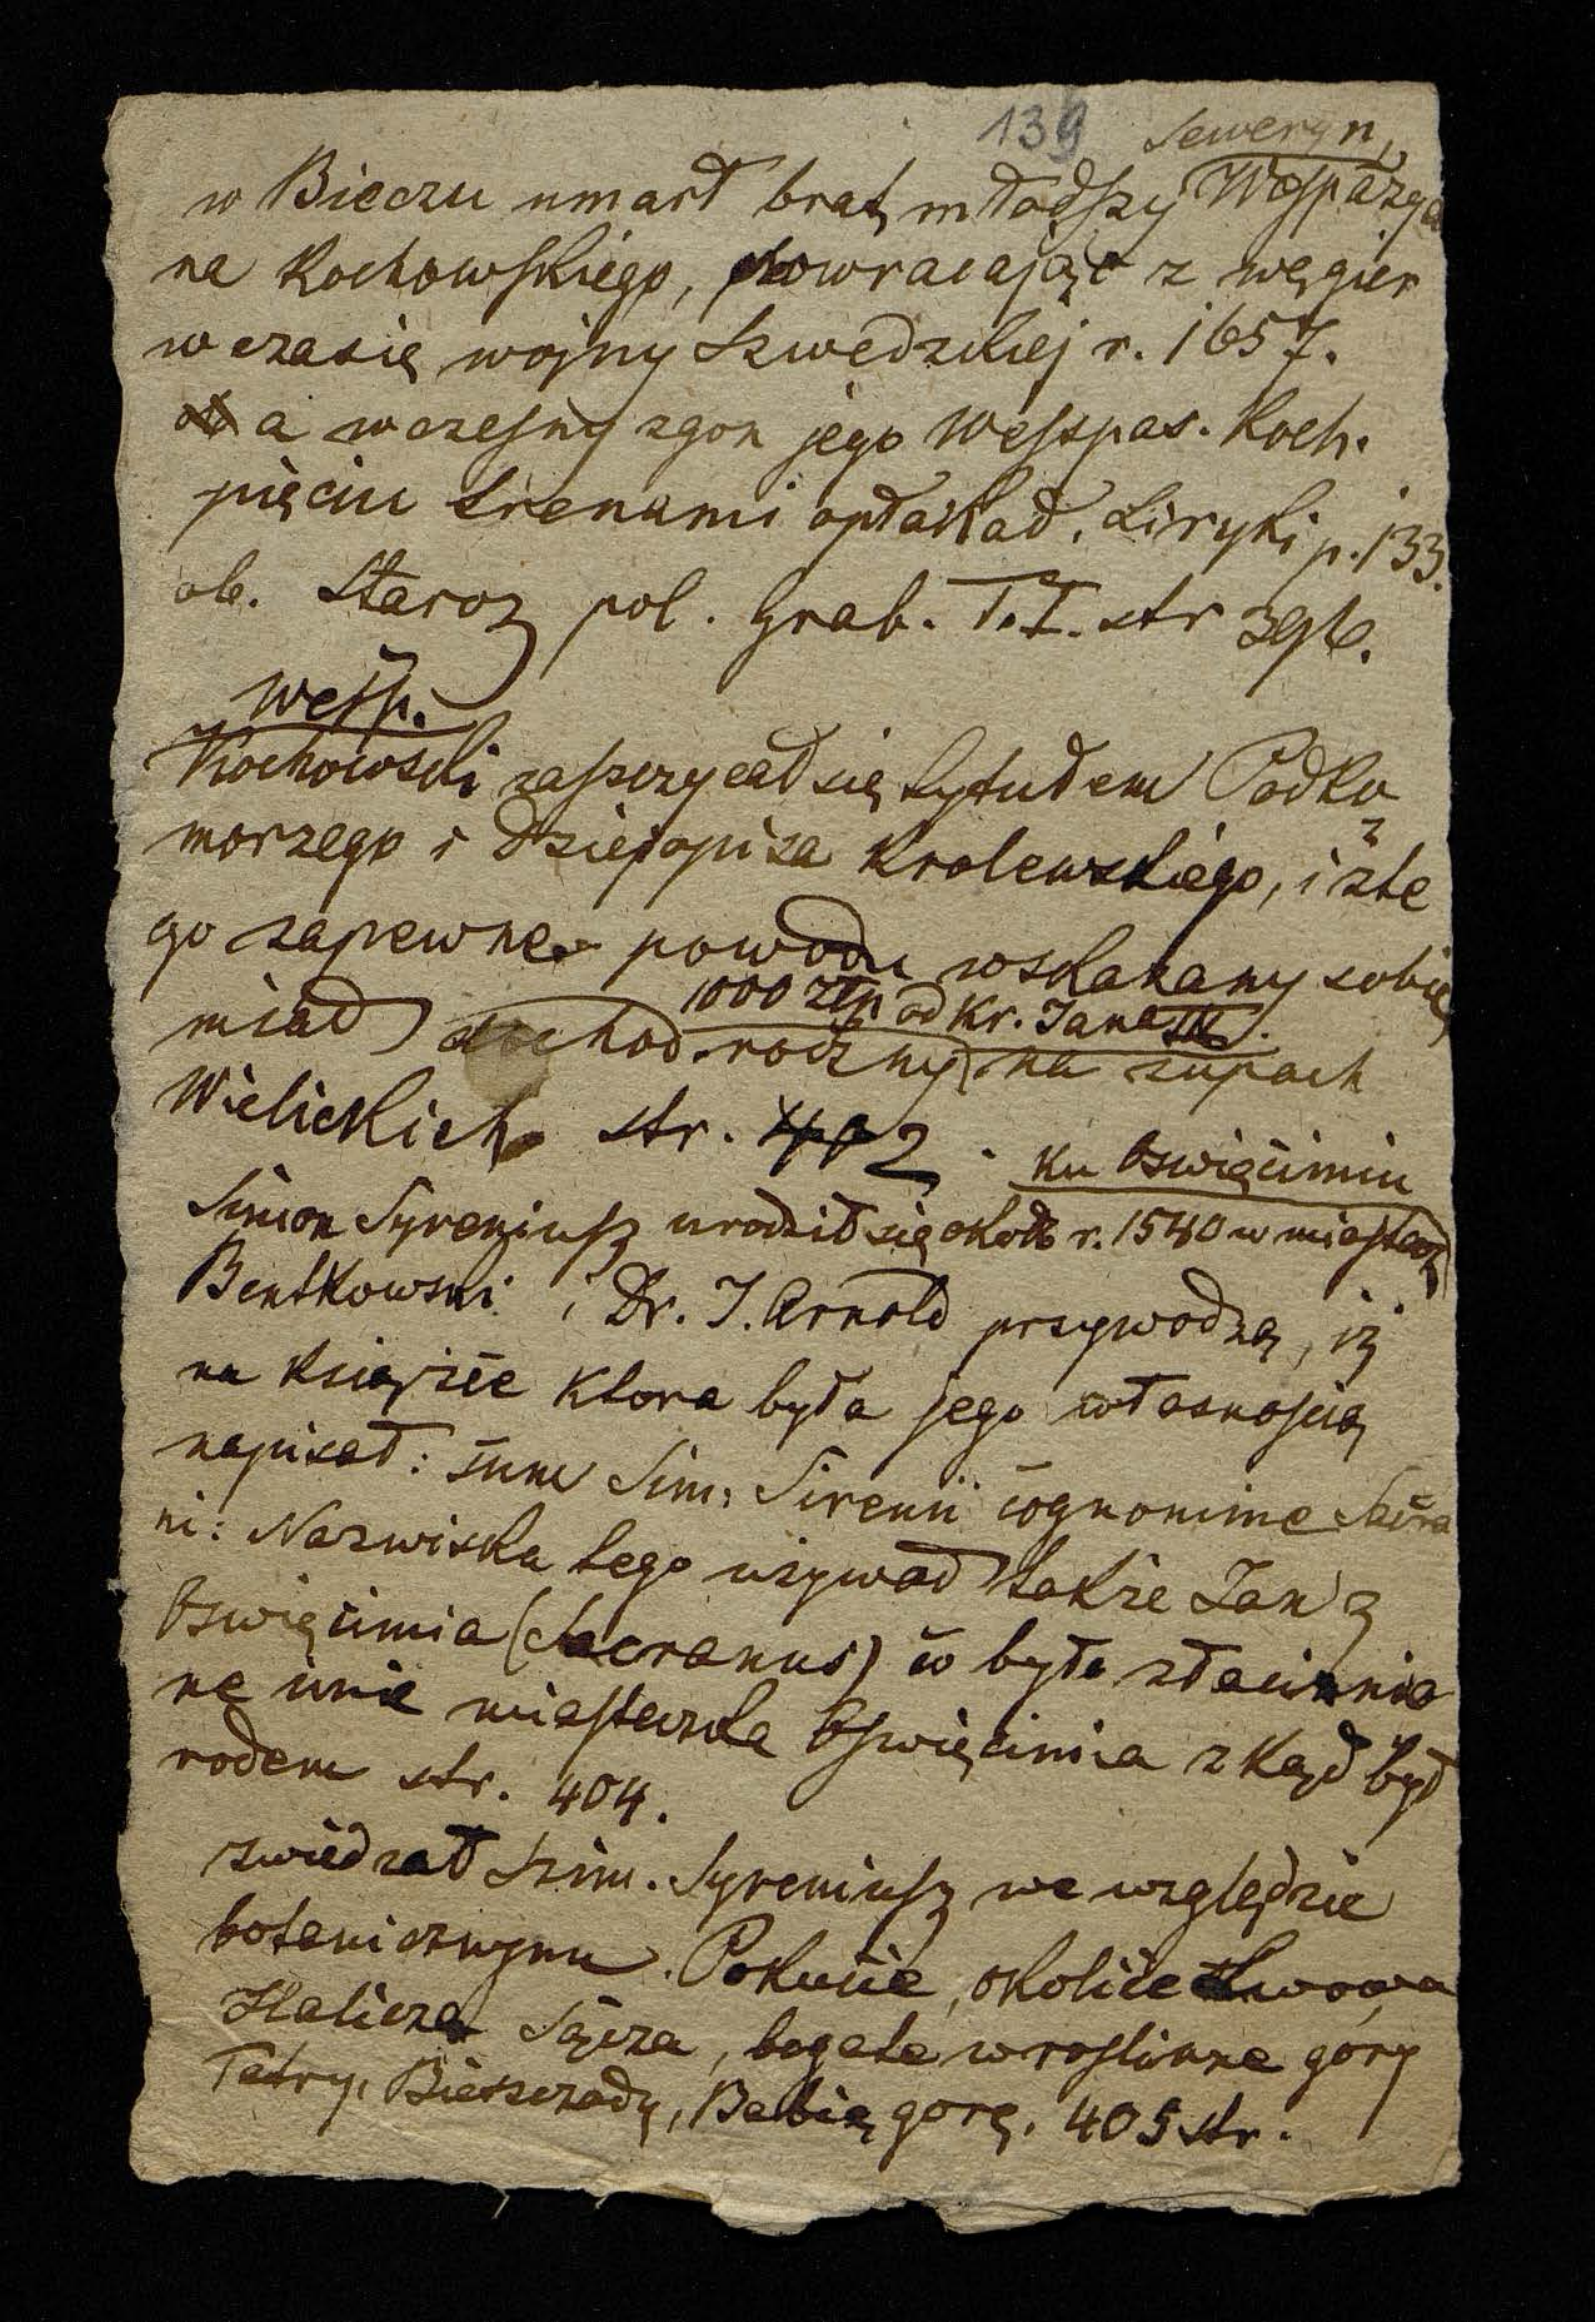 139 Seweryn,
w Bieczu umarł brat młodszy Wespazya
na Kochowskiego, powracając z węgier
w czasie wojny Szwedzkiej r. 1657.
a wczesny zgon jego Wesspas. Koch.
pięciu trenami opłakał. Liryki p. 133.
ob. Staroż pol. Grab. T. I. str
Wesp.
Kochowski zaszczycał się tytułem Podko
morzego i dziejopisa Krolewskiego, i z te
go zapewne powodu wskazany sobie
1000 złp. od Kr. Jana
miał dochod roczny na zupach
Wielickich str. 402.
ku Oswięcimiu
Simon Syreniusz urodził się około r. 1540 w miasteczk
Bentkowski i Dr. J. Arnold przywodzą, iż
na książce ktora była jego własnością
napisał: sum Sim. Sirenii cognomine Sacra
ni: Nazwiska tego używał także Jan z
Oswięcimia (Sacranus) co było złacinnio
ne imie miasteczka Oswięcimia zkąd był
rodem str. 404.
zwiedzał Szim. Syreniusz we względzie
botanicznym. Pokucie, okolice Lwowa
Halicza Sącza, bogate w roslinne gory
Tatry, Bieszczady, Babią gorę. 405 str.